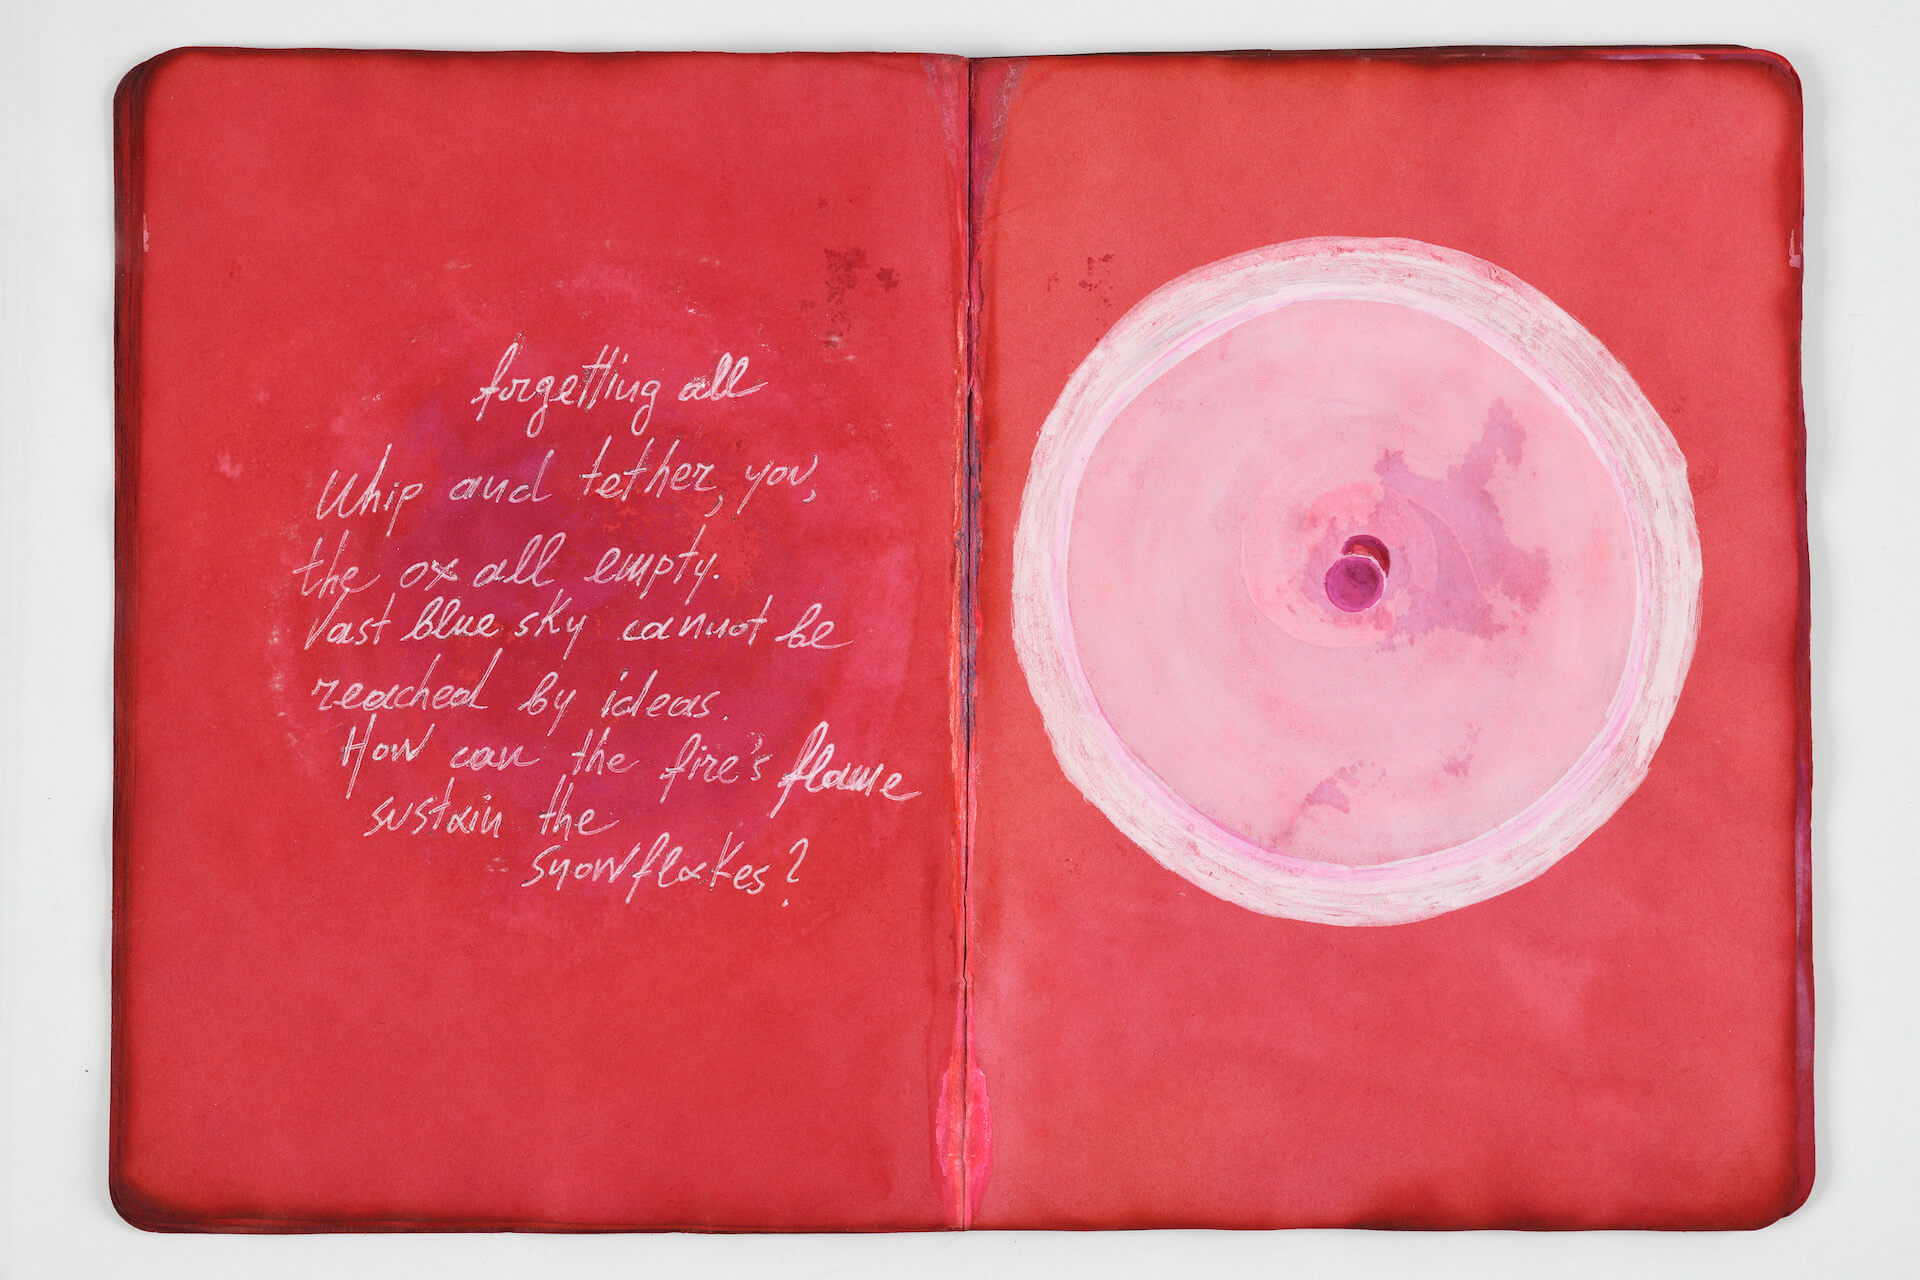 forgetting all
Whip and tether, you,
the ox all empty.
Vast blue sky cannot be
reached by ideas.
How can the fire's flame
sustain the
snowflakes?